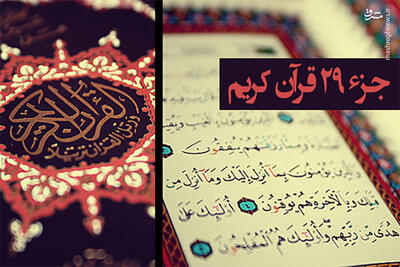 مشرق
mashreghnews.ir
جزء ۲۹ قرآن کریم
وَمِمَّا رَزَقْنَاهُمْ يُنْفِقُونَ
يُؤْمِنُونَ بِمَا أُنْزِلَ إِلَيْكَ وَمَا أُنْزِلَ مِنْ
قَبْلِكَ وَبِالْآخِرَةِ هُمْ يُوقِنُونَ ٤ أُولَٰئِكَ عَلَىٰ
هُدًى مِنْ رَبِّهِمْ وَأُولَٰئِكَ هُمُ الْمُفْلِحُونَ
القرآن الكريم
ورتل القرآن ترتيلا